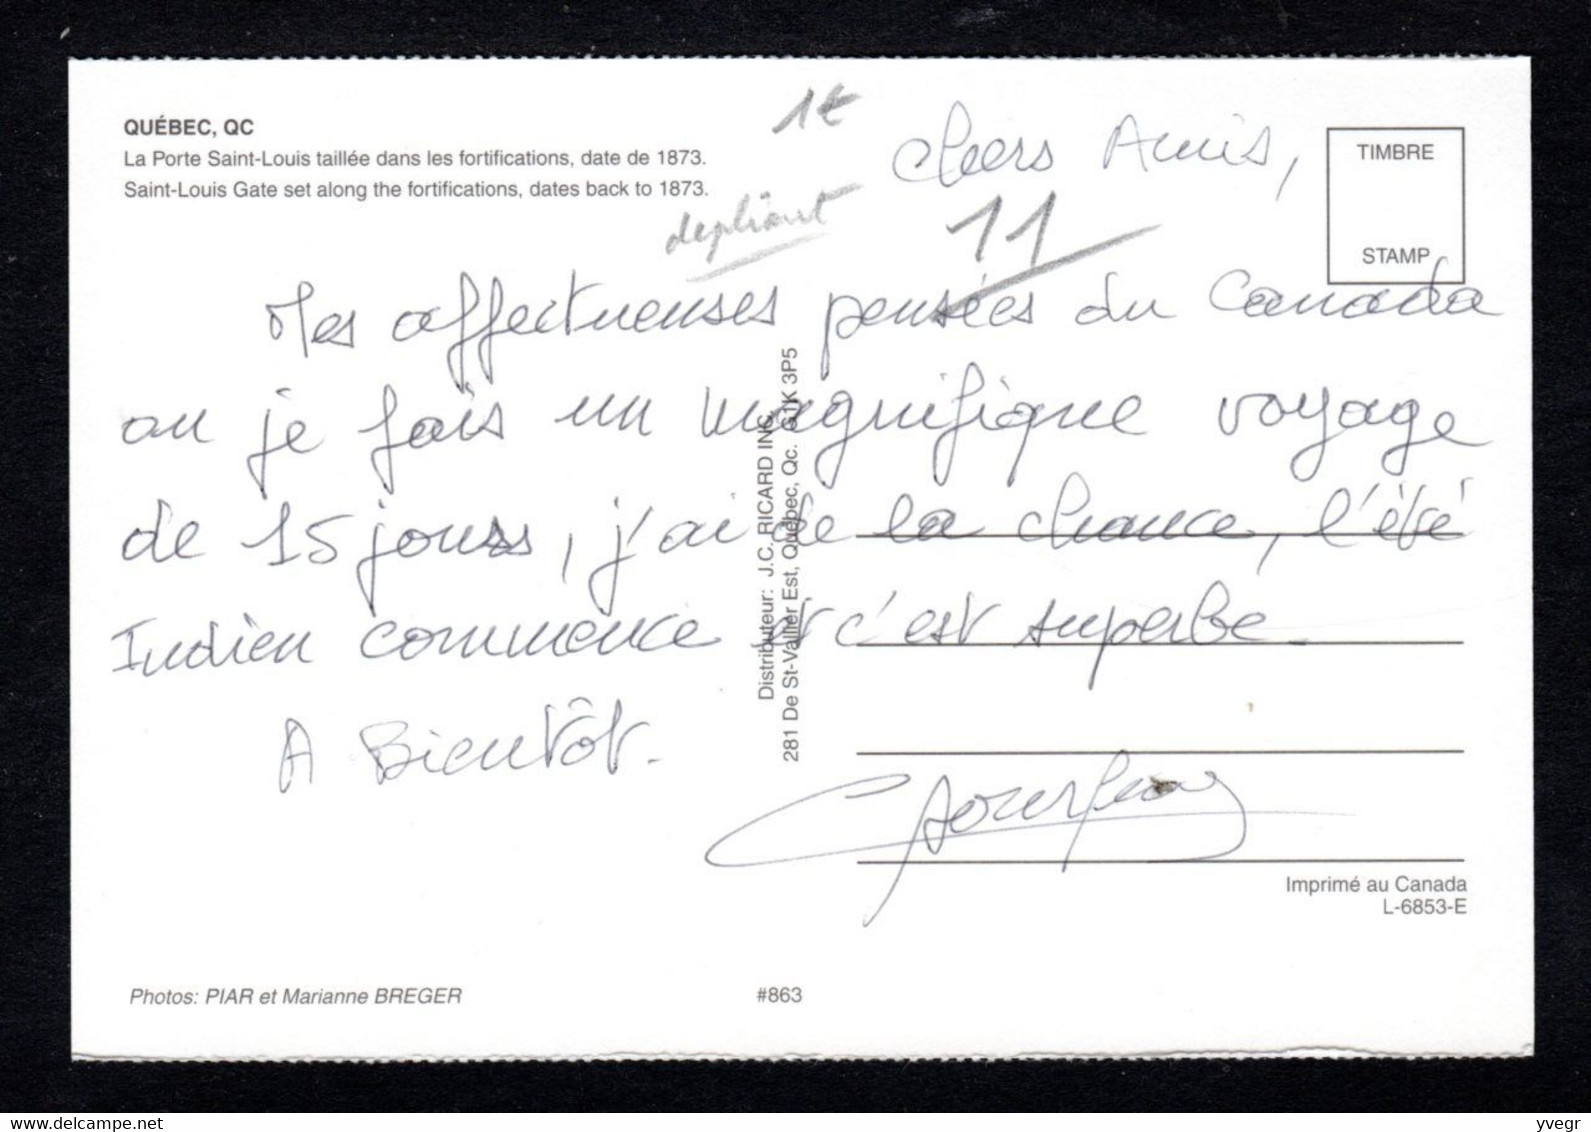 QUÉBEC, QC
La Porte Saint-Louis taillée dans les fortifications, date de 1873.
Saint-Louis Gate set along the fortifications, dates back to 1873.
1€
dépliant
11
TIMBRE
STAMP
Chers Amis,
Mes affectueuses pensées du Canada
ou je fais un magnifique voyage
de 15 jours, j'ai de la chance, l'été
Indien commence et c'est superbe.
A Bientôt.
Distributeur: J.C. RICARD INC.
281 De St-Vallier Est, Québec, Qc. G1K 3P5
Imprimé au Canada
L-6853-E
Photos: PIAR et Marianne BREGER
#863
yvegr